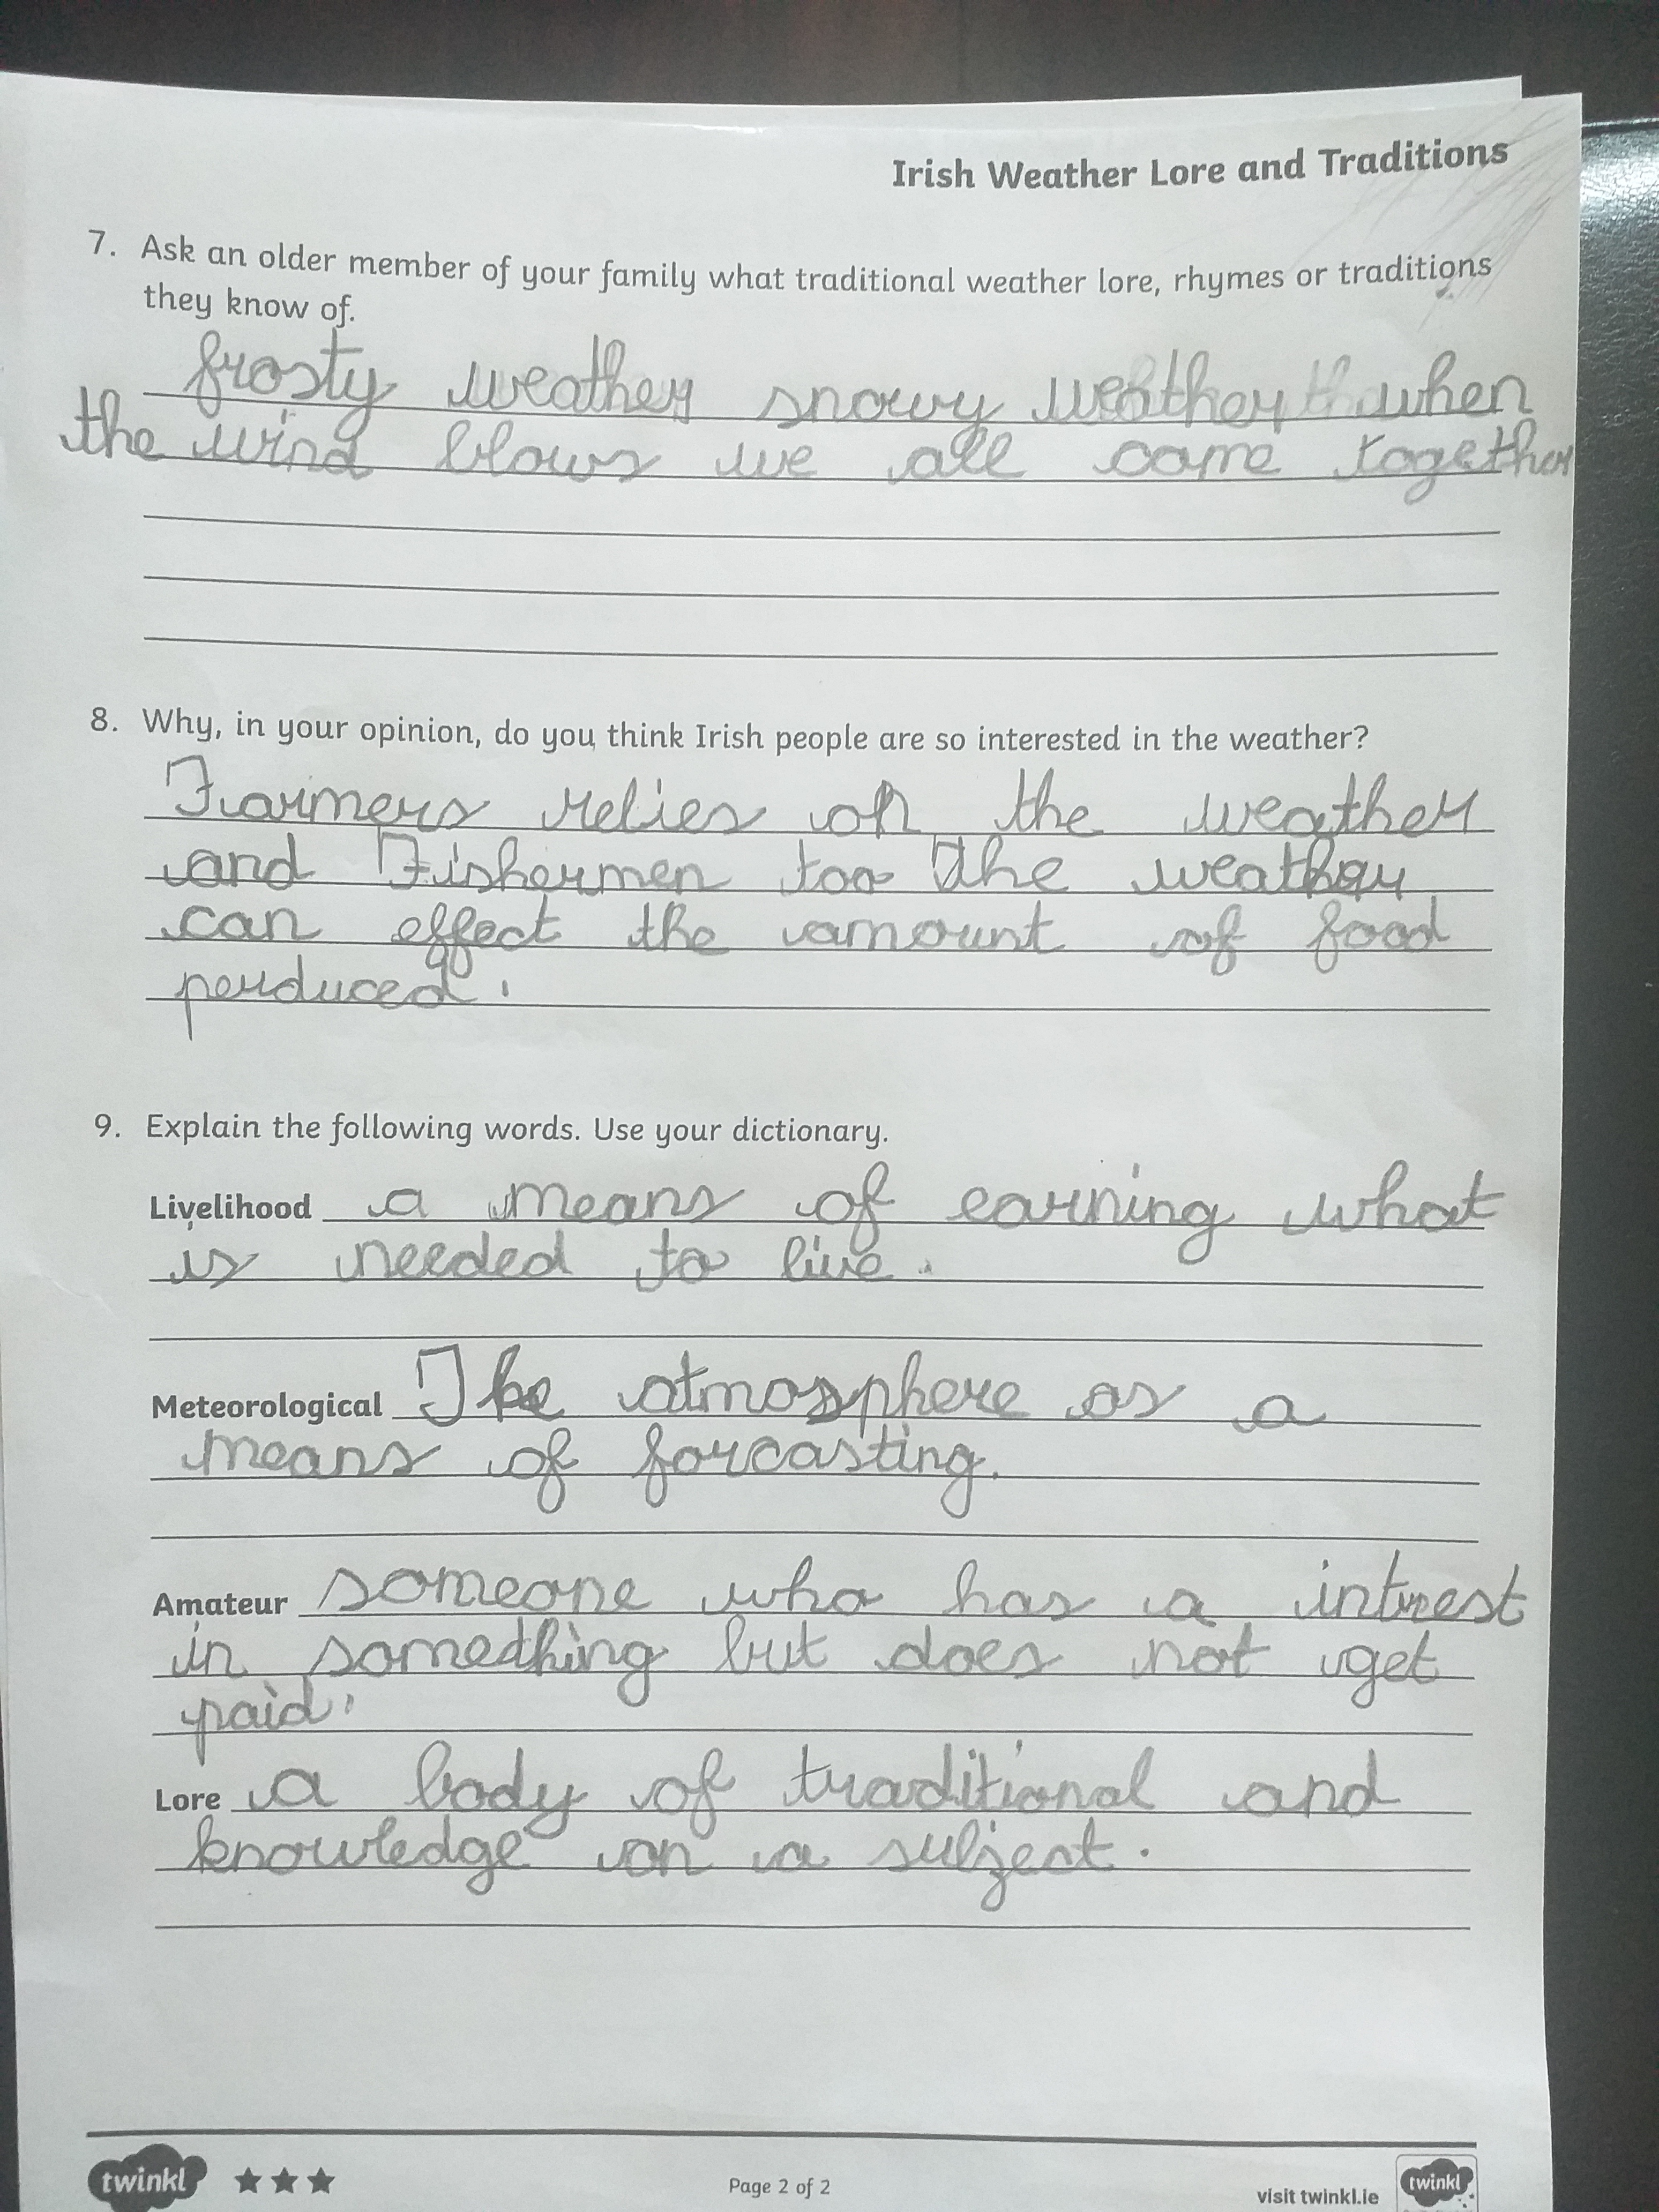 Irish Weather Lore and Traditions
7. Ask an older member of your family what traditional weather lore, rhymes or traditions
they know of.
frosty weather snowy weather when
the wind blows we all come together
8. Why, in your opinion, do you think Irish people are so interested in the weather?
Farmers relies on the weather
and Fishermen too The weather
can effect the amount of food
perduced.
9. Explain the following words. Use your dictionary.
Livelihood a means of earning what
is needed to live.
Meteorological The atmosphere as a
means of forcasting.
Amateur someone who has a intrest
in something but does not get
paid.
Lore a body of traditional and
knowledge on a subject.
twinkl
Page 2 of 2
visit twinkl.ie
twinkl